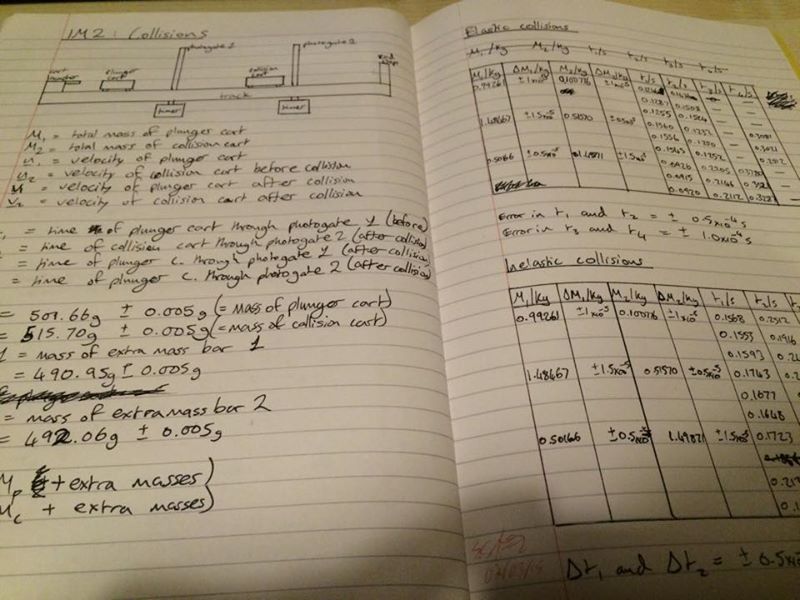 IM2: Collisions
photogate 1
photogate 2
cart
launcher
plunger
cart
collision
cart
end
stop
track
timer
timer
M1 = total mass of plunger cart
M2 = total mass of collision cart
u1 = velocity of plunger cart
u2 = velocity of collision cart before collision
v1 = velocity of plunger cart after collision
v2 = velocity of collision cart after collision
= time of plunger cart through photogate 1 (before)
= time of collision cart through photogate 2 (after collision)
= time of plunger c. through photogate 1 (after collision)
= time of plunger c. through photogate 2 (after collision)
= 501.66g ± 0.005g (= mass of plunger cart)
= 515.70g ± 0.005g (= mass of collision cart)
1 = mass of extra mass bar 1
= 490.95g ± 0.005g
= mass of extra mass bar 2
= 492.06g ± 0.005g
Mp + extra masses
Mc + extra masses
Elastic collisions
M1/kg M2/kg t1/s t2/s t3/s t4/s
M1/kg ΔM1/kg M2/kg ΔM2/kg t1/s t2/s t3/s t4/s
0.99261
0.1287 0.1508 — —
0.1255 0.1504 — —
1.48667 ±1.5x10⁻⁵ 0.51570 ±0.5x10⁻⁵ 0.1560 0.1252 —
0.1556 0.1250 —
0.1565 0.1252 —
0.50166 ±0.5x10⁻⁵ ±1.5x10⁻⁵
0.0915 0.2166
0.0920 0.2112
Error in t1 and t2 = ± 0.5x10⁻⁴ s
Error in t3 and t4 = ± 1.0x10⁻⁴ s
Inelastic collisions
M1/kg ΔM1/kg M2/kg ΔM2/kg t1/s t2/s
0.99261 ±1x10⁻⁵ ±1x10⁻⁵ 0.1568 0.2512
0.1553
0.1593
1.48667 ±1.5x10⁻⁵ 0.51570 ±0.5x10⁻⁵ 0.1763
0.1677
0.1648
0.50166 ±0.5x10⁻⁵ 1.49871 ±1.5x10⁻⁵ 0.1723
Δt1 and Δt2 = ± 0.5x10